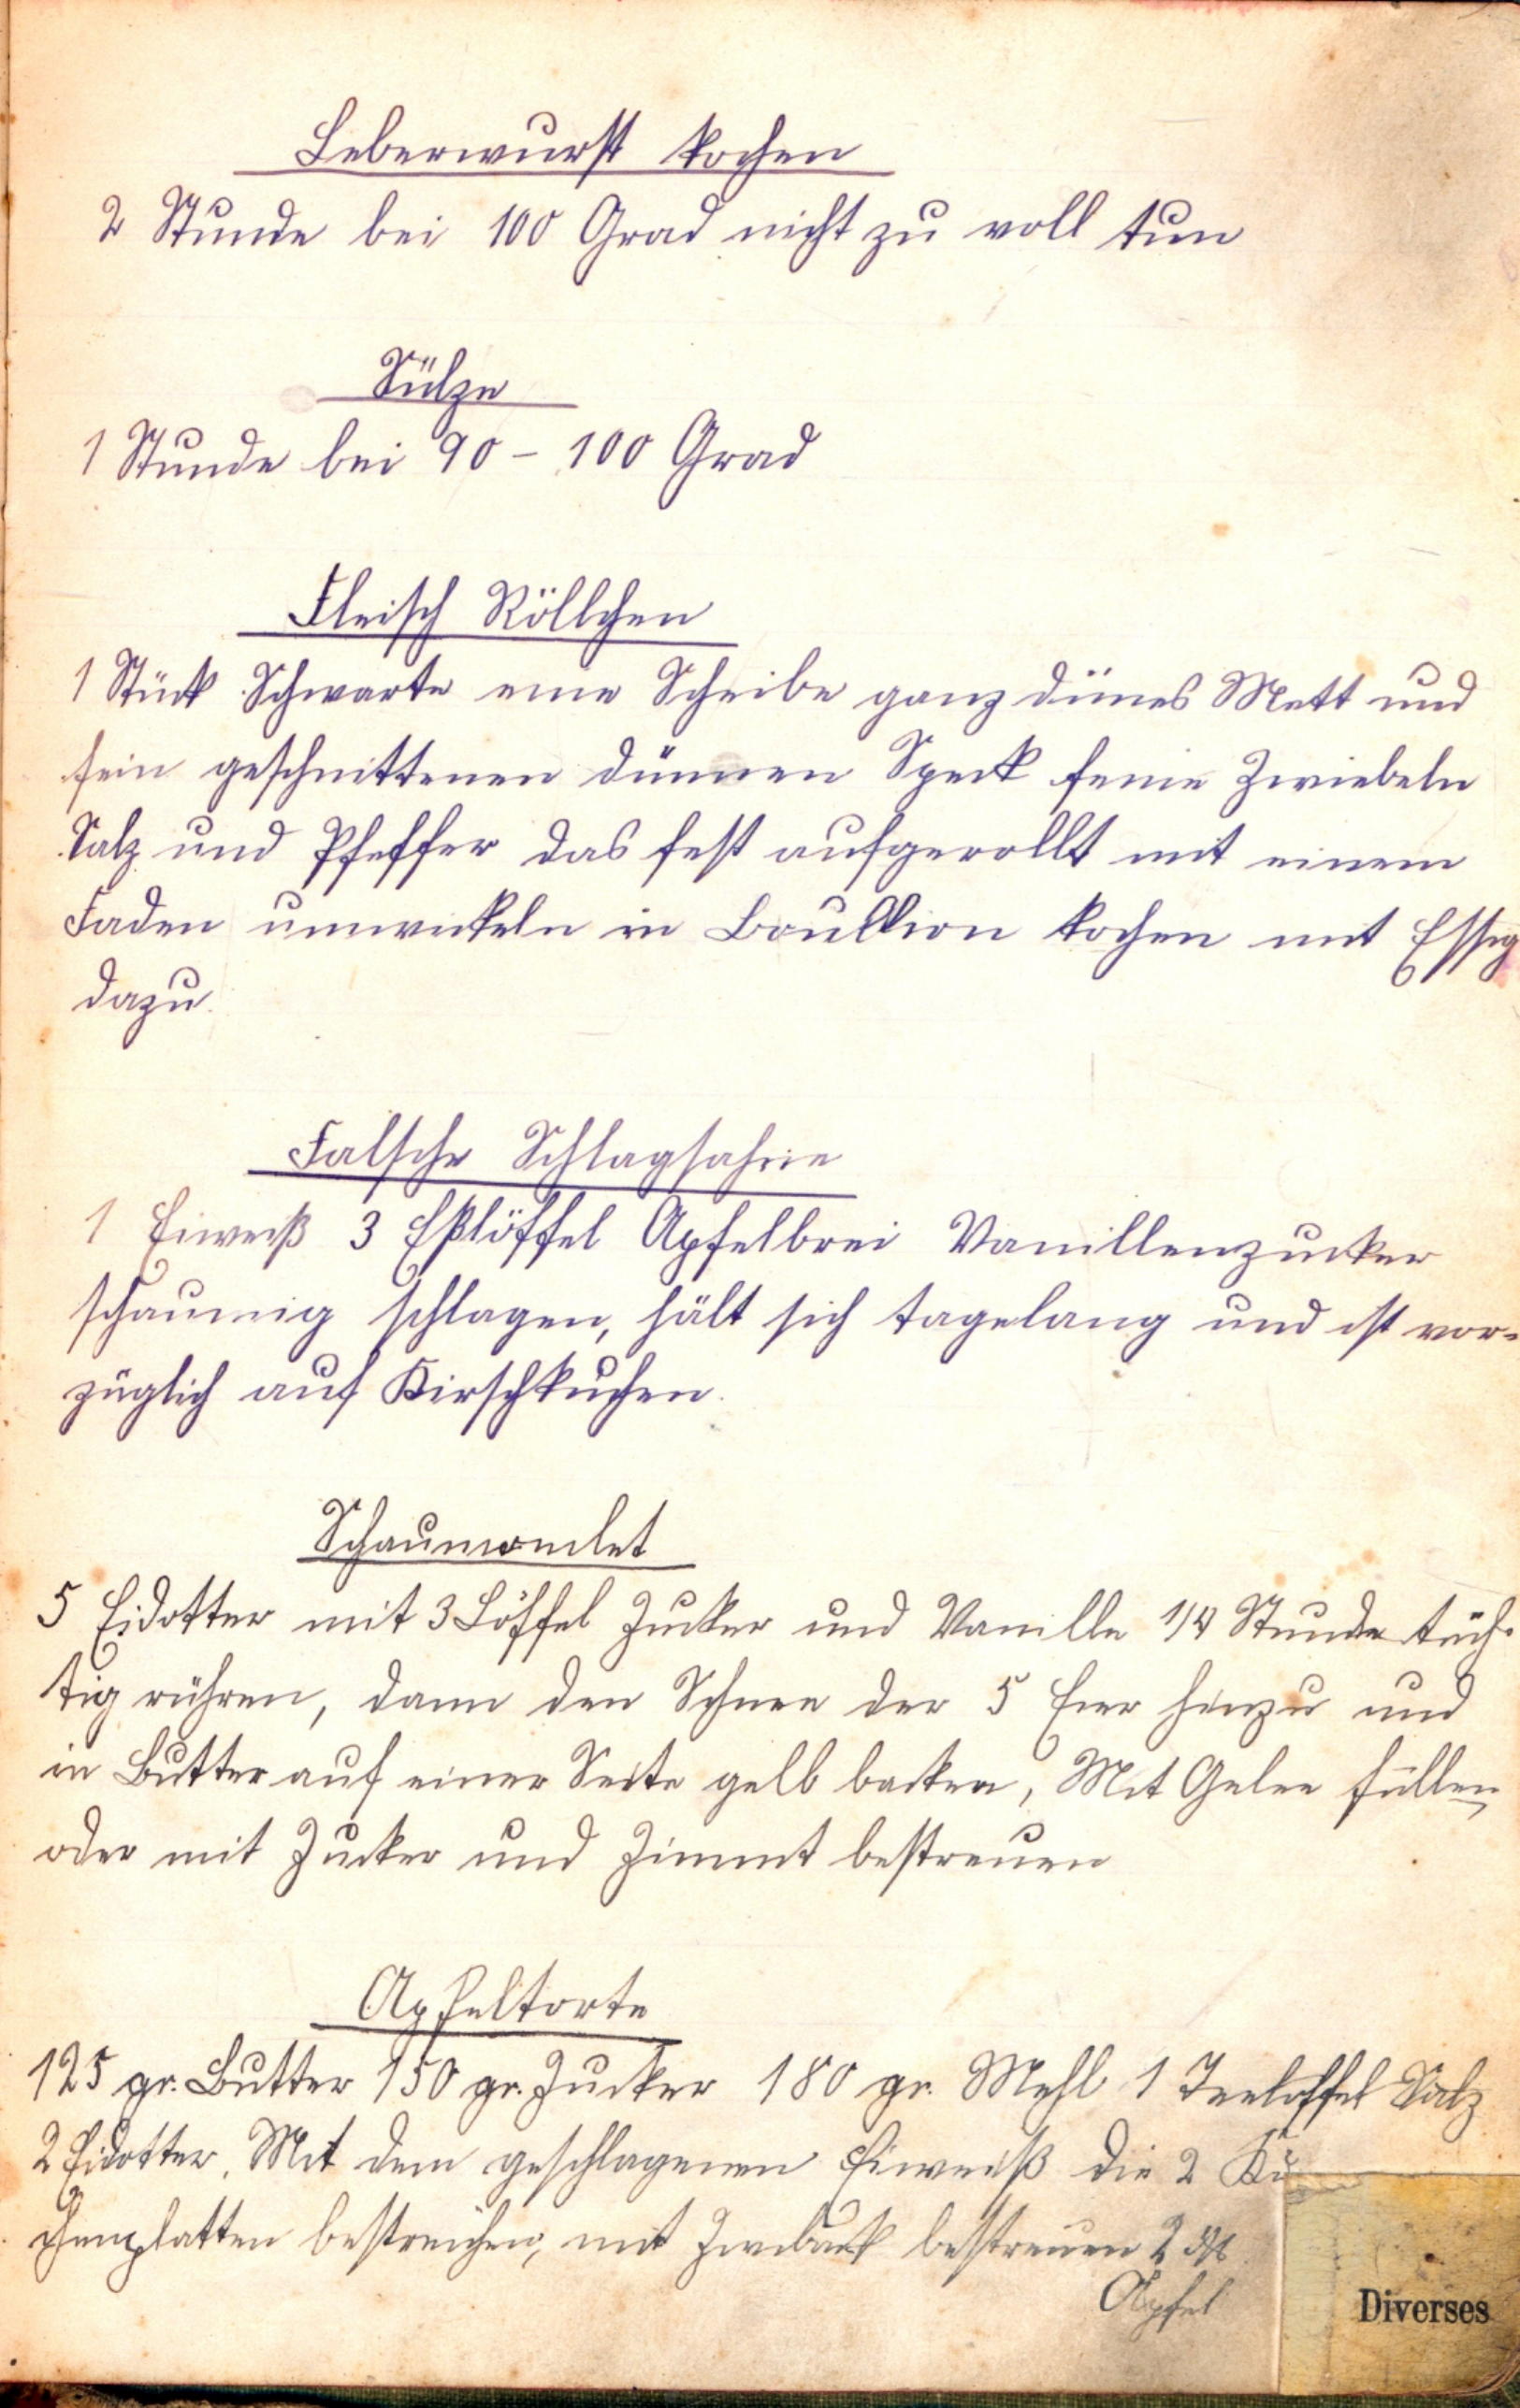 Leberwurst kochen
2 Stunde bei 100 Grad nicht zu voll tun
Sülze
1 Stunde bei 90 - 100 Grad
Fleisch Röllchen
1 Stück Schwarte eine Scheibe ganz dünes Mett und
fein geschnittenen dünnen Speck feine Zwiebeln
Salz und Pfeffer das fest aufgerollt mit einem
Faden umwickeln in Boullion kochen mit Essig
dazu.
Falsche Schlagsahne
1 Eiweiß 3 Eßlöffel Apfelbrei Vanillenzucker
schaumig schlagen, hält sich tagelang und ist vor-
züglich auf Kirschkuchen.
Schaumomlet
5 Eidotter mit 3 Löffel Zucker und Vanille 1/4 Stunde tüch-
tig rühren, dann den Schnee der 5 Eier hinzu und
in Butter auf einer Seite gelb backen, Mit Gelee füllen,
oder mit Zucker und Zimmt bestreuen
Apfeltorte
125 gr. Butter 150 gr. Zucker 180 gr. Mehl 1 Teelöffel Salz
2 Eidotter. Mit dem geschlagenen Eiweiß die 2 Ku
chenplatten bestreichen, mit Zwieback bestreuen 2 ℔
Apfel
Diverses